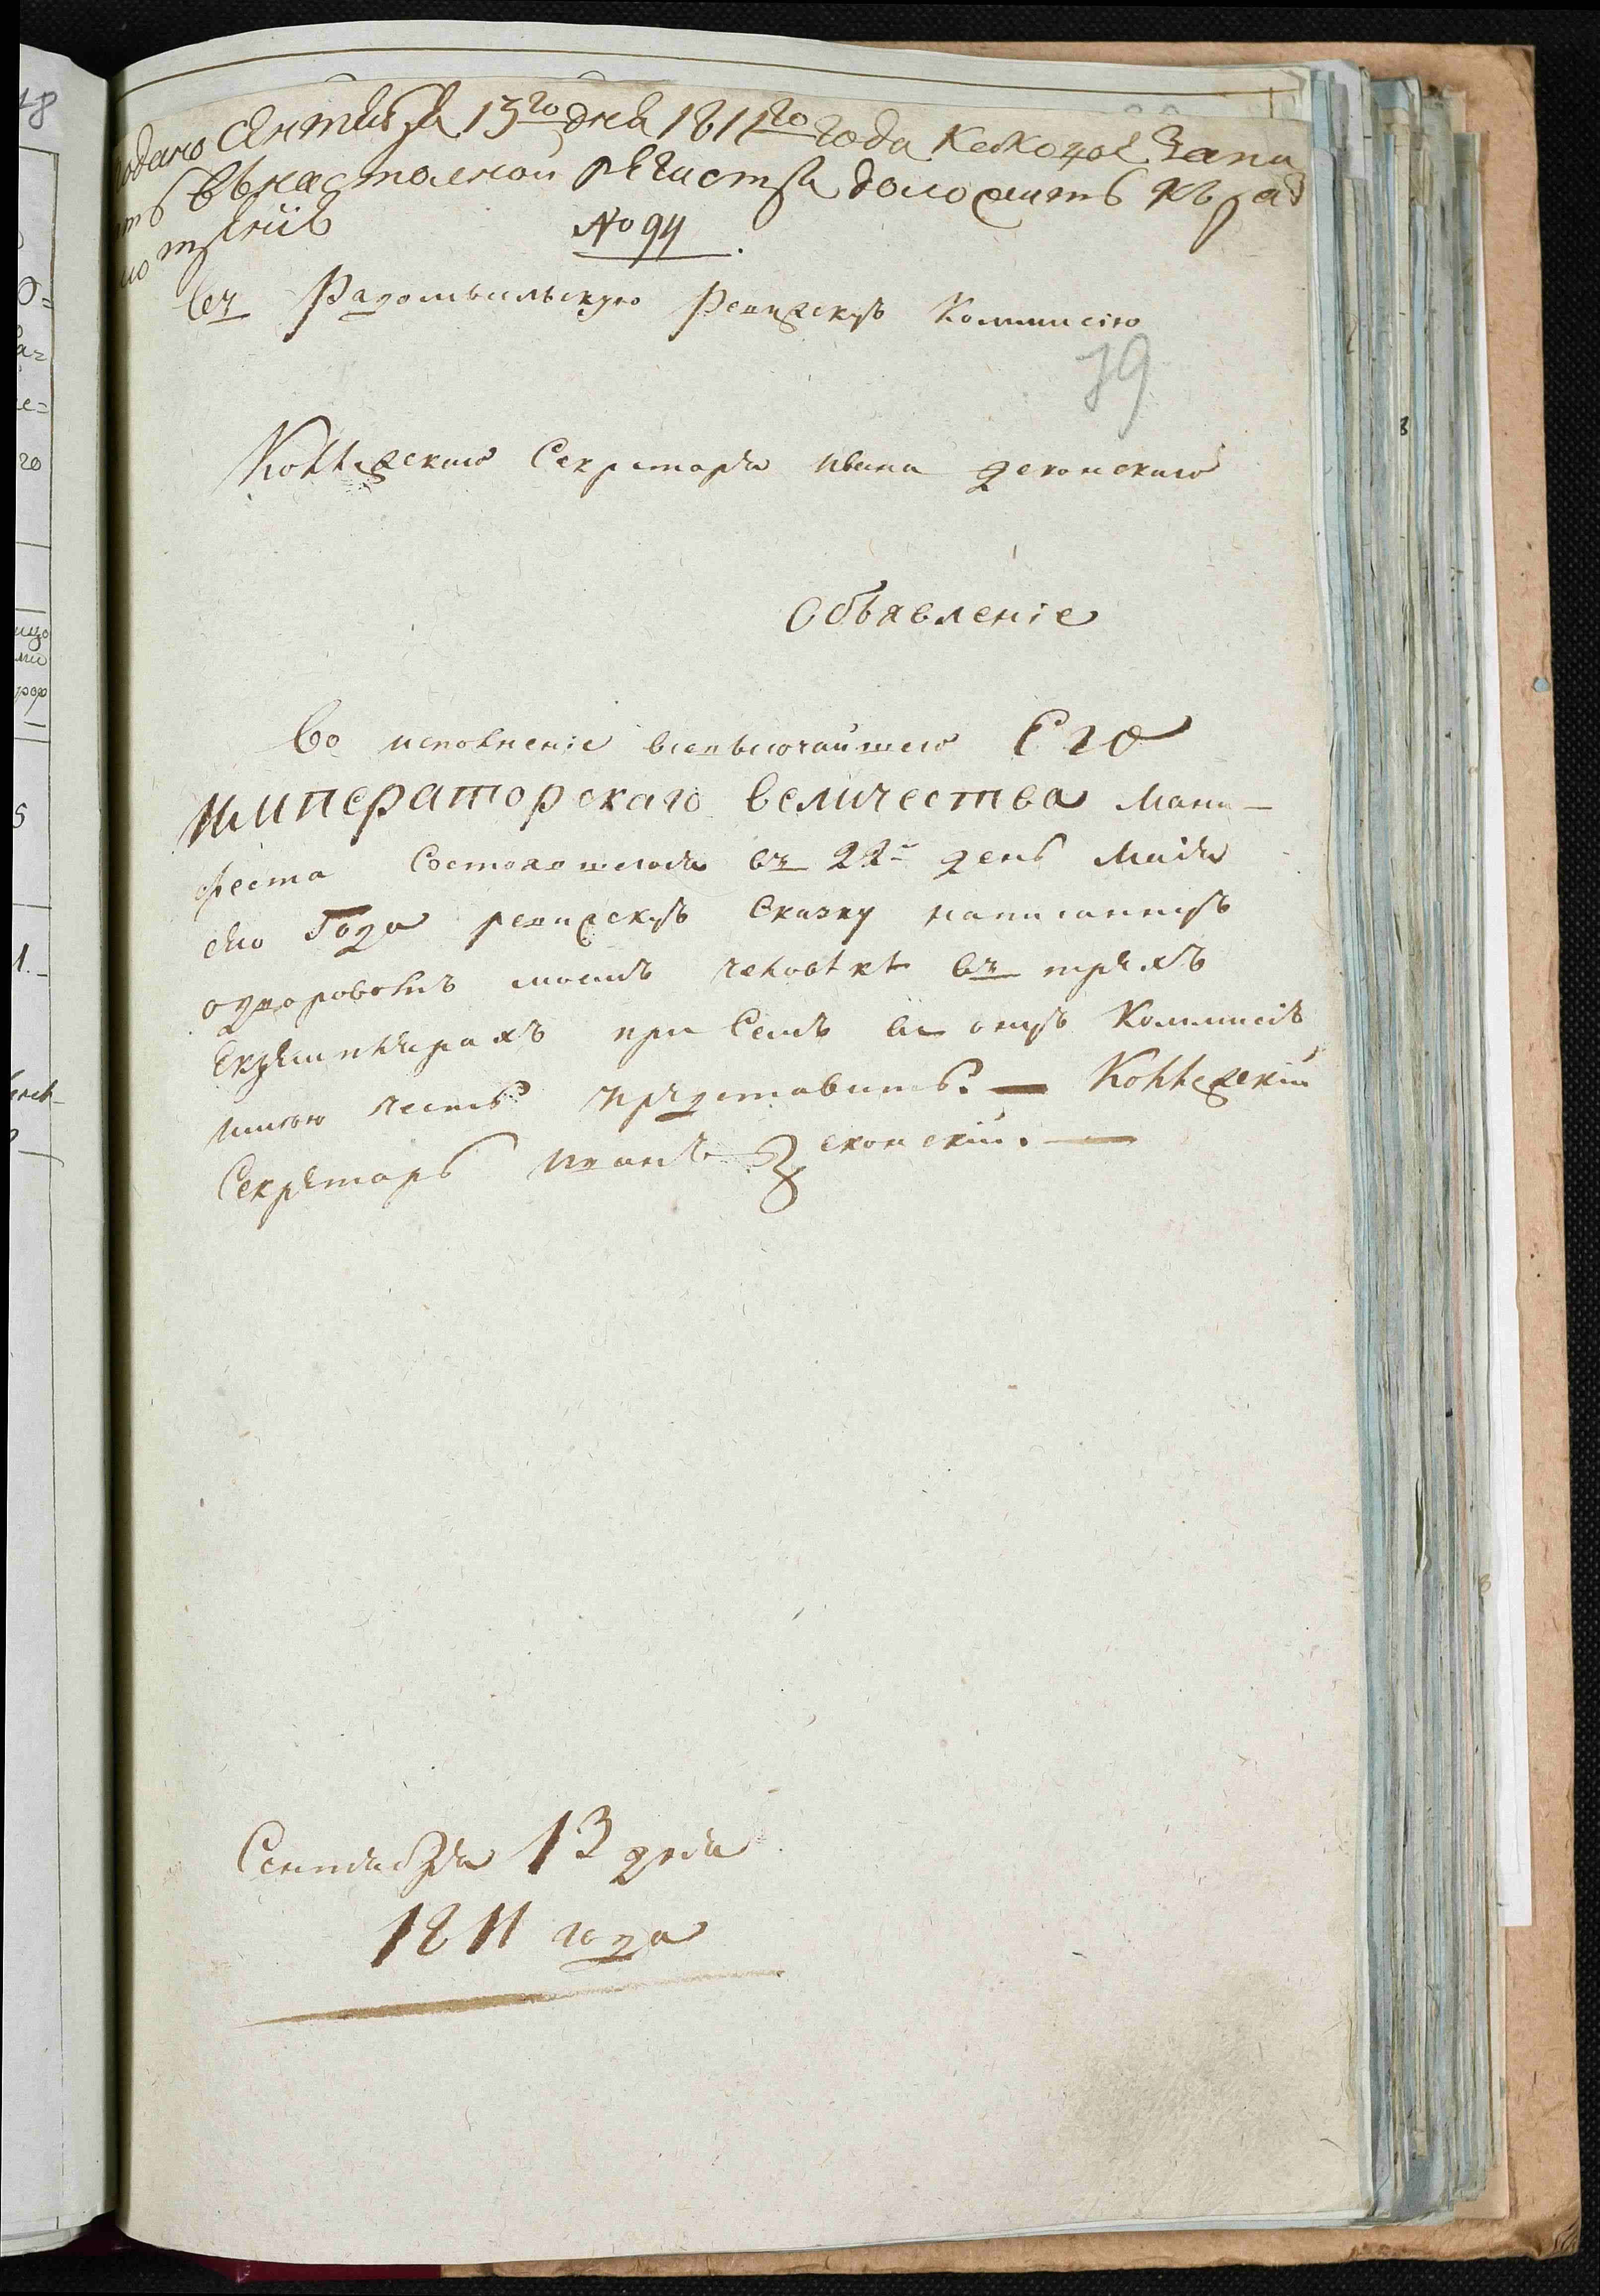 одано Сентября 13го дня 1811го года Кексҳое Запи
ать въ настолной регистръ доложить къ ра
смотрению
No 94
Въ Радомысльскую Ревизскую Коммисію
79
Коллежскаго Секретаря Ивана Деконскаго
Объявленіе
Во исполненіе всевысочайшего Его
Императорскаго величества Мани-
феста Состоявшегося въ 22й день Маія
сего Года ревизскую Сказку написанную
о дворовомъ моемъ человѣкѣ въ трехъ
Екземплярахъ при Семъ въ оную Коммисію
имѣю честь представить. — Коллежскій
Секретарь Иванъ Деконскій. —
Сентября 13 дня
1811 года